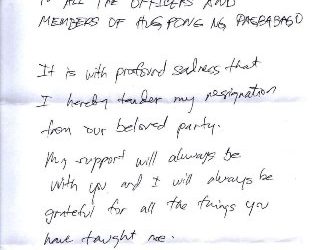 TO ALL THE OFFICERS AND
MEMBERS OF HUGPONG NG PAGBABAGO
It is with profound sadness that
I hereby tender my resignation
from our beloved party.
My support will always be
with you and I will always be
grateful for all the things you
have taught me.